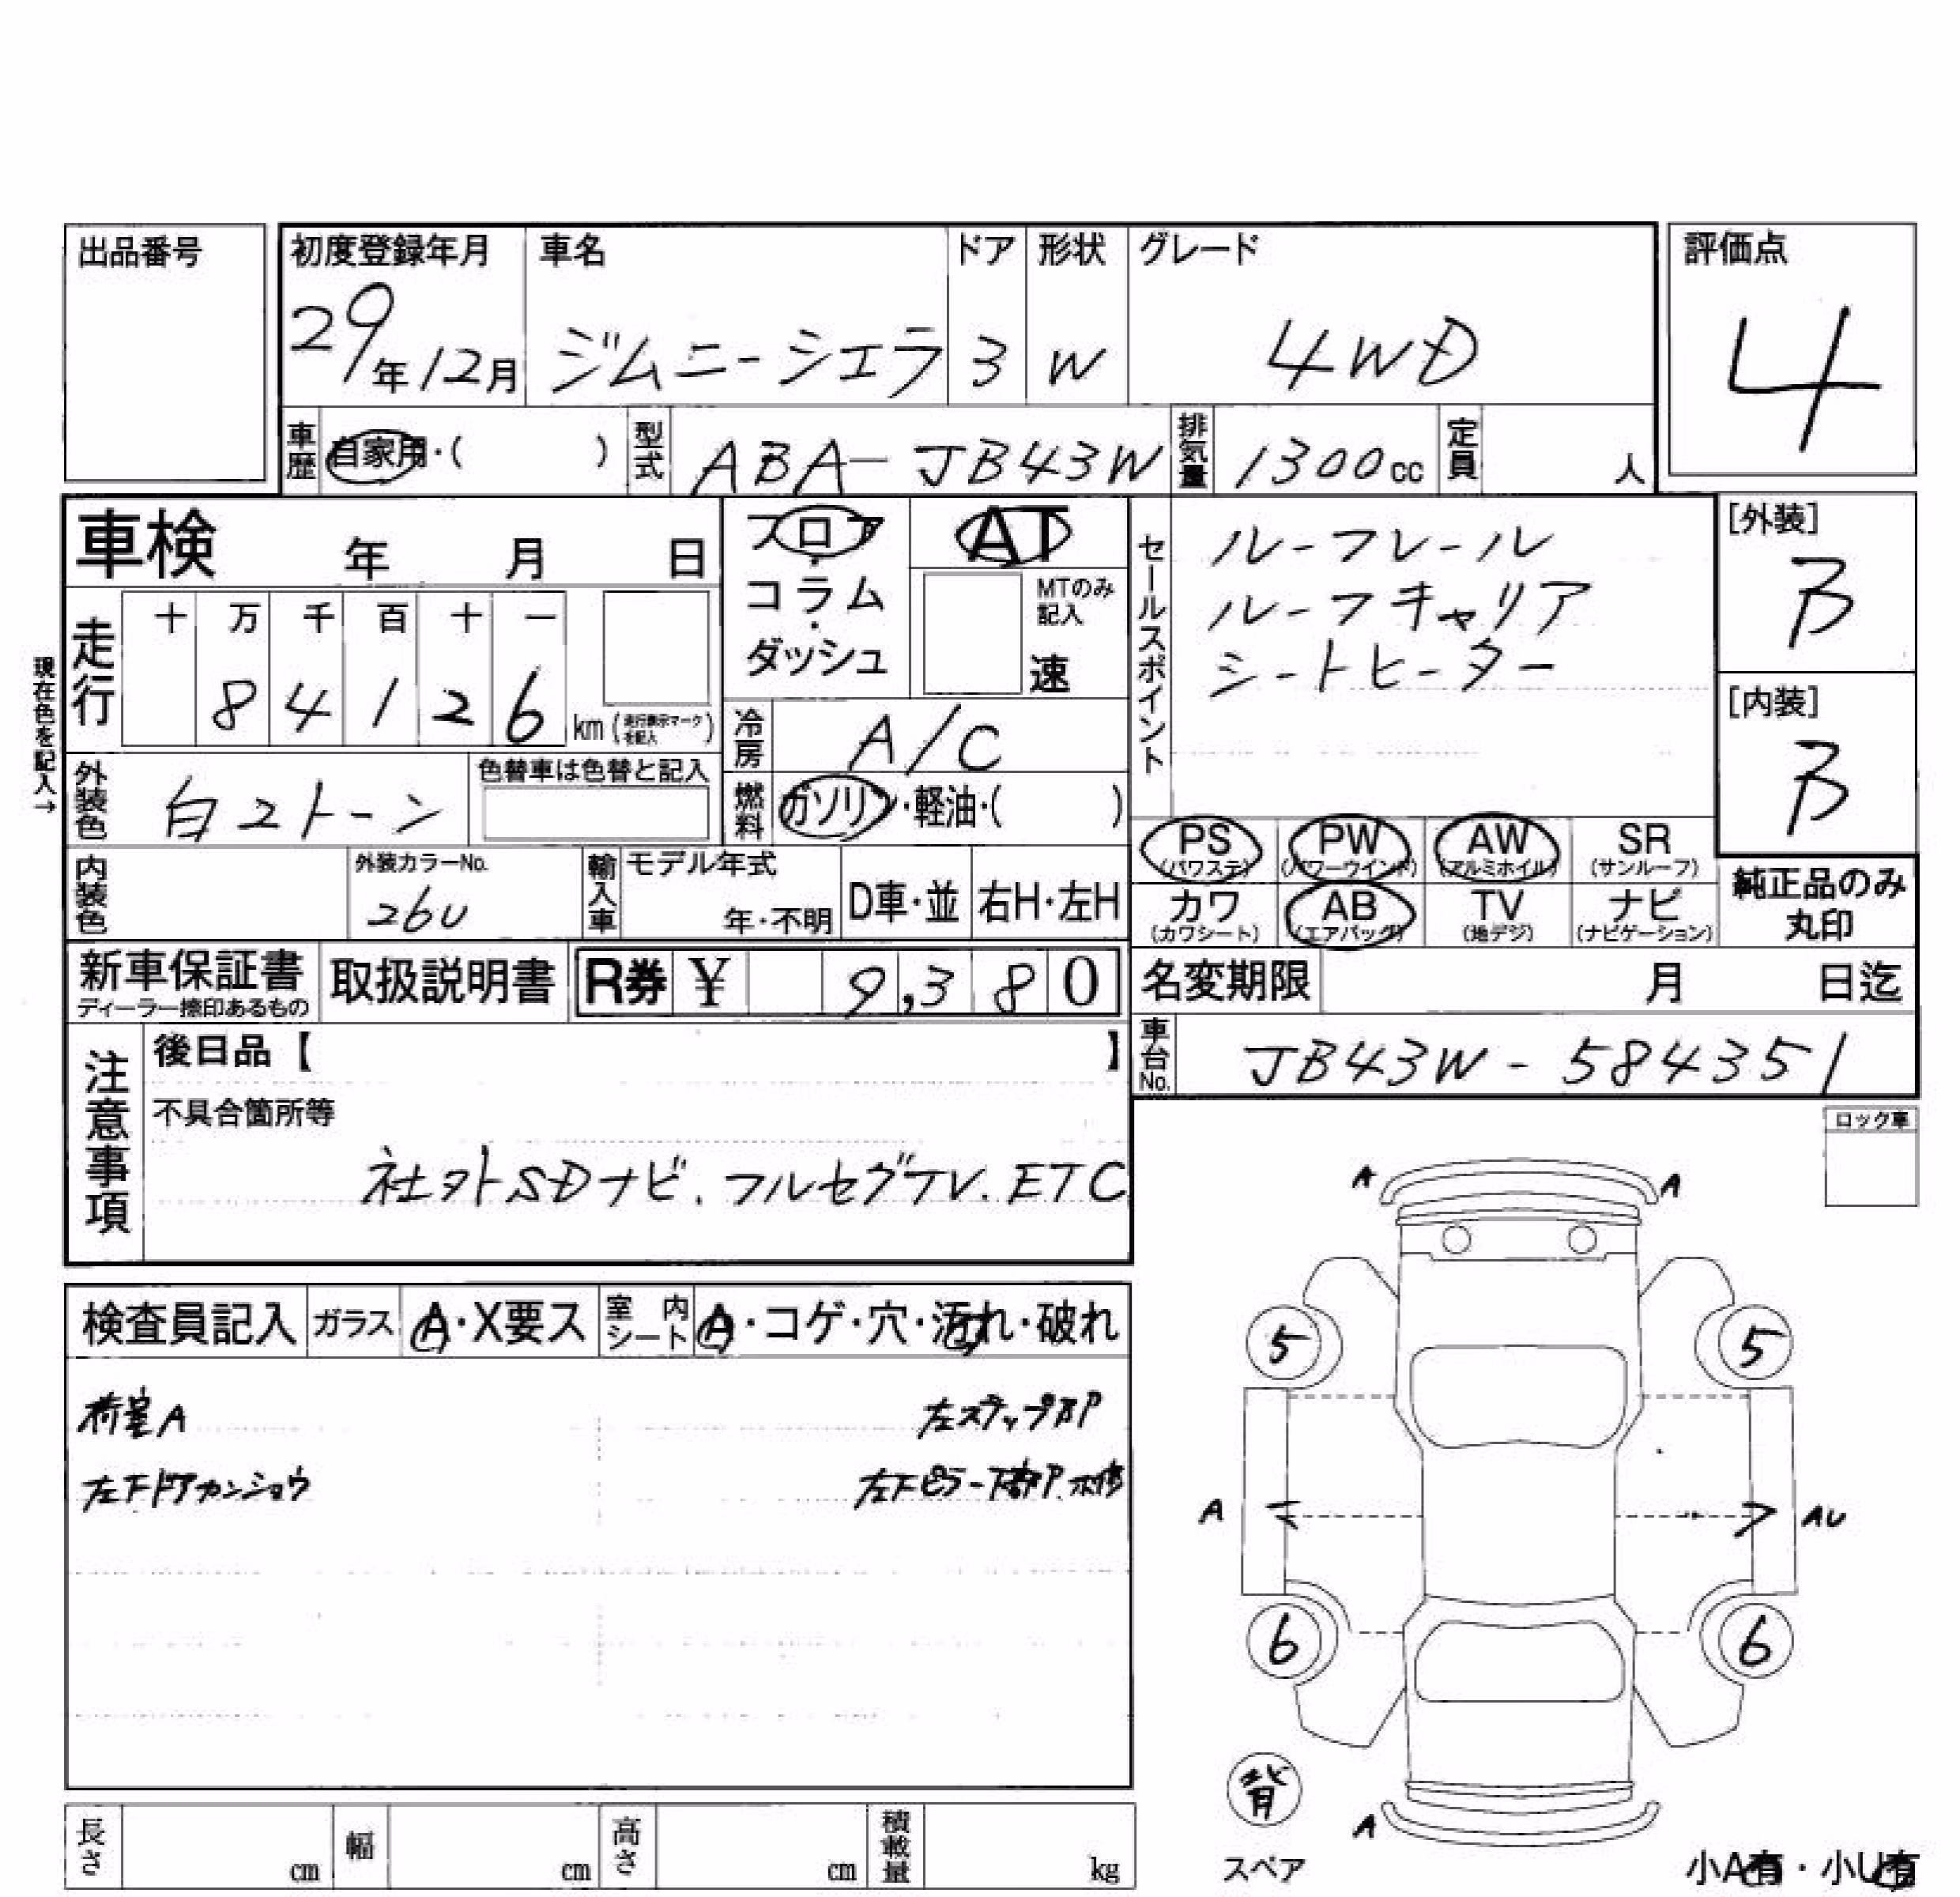 出品番号
初度登録年月 車名 ドア 形状 グレード 評価点
29年12月 ジムニーシエラ 3 W 4WD 4
車歴 自家用・( ) 型式 ABA-JB43W 排気量 1300cc 定員 人
車検 年 月 日
フロア・コラム・ダッシュ
AT
MTのみ記入
速
セールスポイント
ルーフレール
ルーフキャリア
シートヒーター
[外装]
B
[内装]
B
現在色を記入→
走行 十 万 千 百 十 一
8 4 1 2 6 km (走行表示マークを記入)
冷房 A/C
外装色 白2トーン 色替車は色替と記入
燃料 ガソリン・軽油・( )
PS (パワステ) PW (パワーウインド) AW (アルミホイル) SR (サンルーフ)
カワ (カワシート) AB (エアバッグ) TV (地デジ) ナビ (ナビゲーション)
純正品のみ
丸印
内装色 外装カラーNo. 26U 輸入車 モデル年式 年・不明 D車・並 右H・左H
新車保証書 取扱説明書 R券 ¥ 9,380 名変期限 月 日迄
ディーラー捺印あるもの
車台No. JB43W-584351
注意事項 後日品【 】
不具合箇所等
社外SDナビ、フルセグTV、ETC
ロック車
A A
検査員記入 ガラス A・X要ス 室内シート A・コゲ・穴・汚れ・破れ
5 5
荷室A 左ステップ凹P
左下ドアカンショウ
A AU
6 6
背
スペア
A
長さ cm 幅 cm 高さ cm 積載量 kg
小A有・小U有